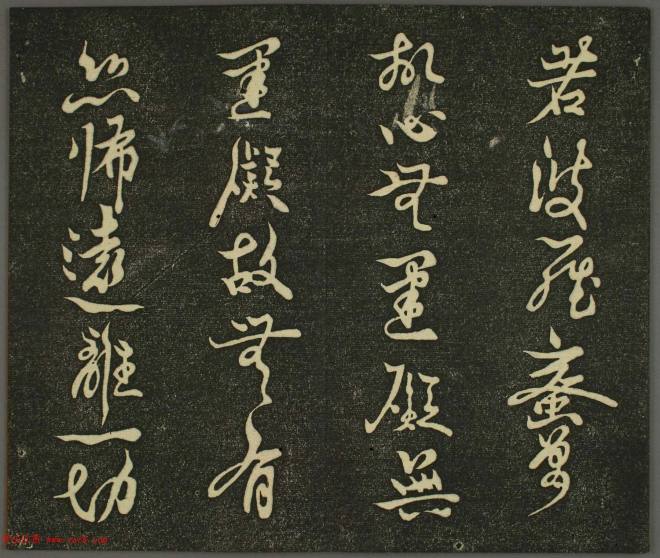 若波羅蜜多
故心無罣礙無
罣礙故無有
恐怖遠離一切